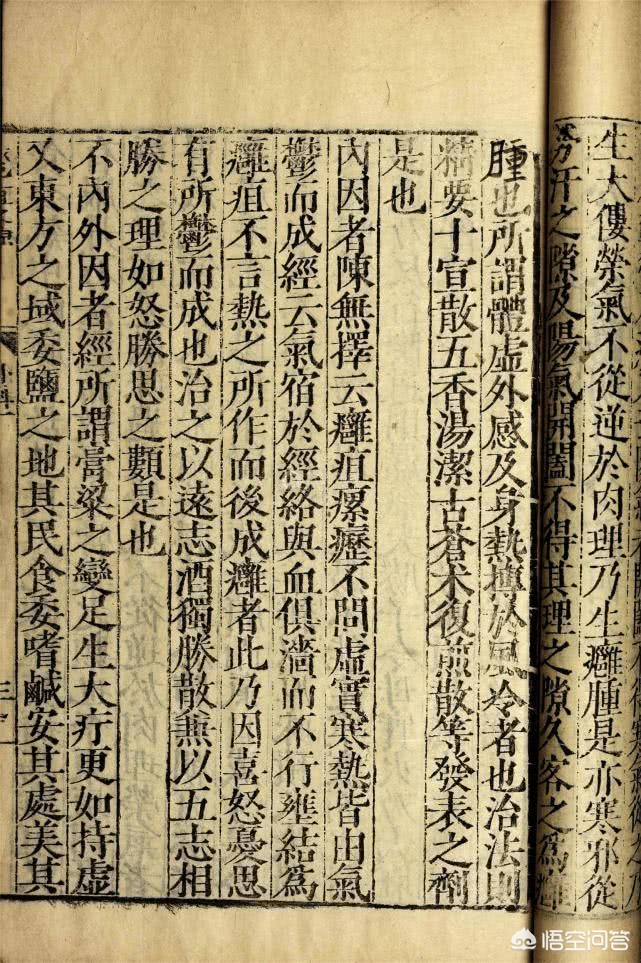 生大僂榮氣不從逆於肉理乃生癰腫是亦寒邪從
汗之隙及陽氣開闔不得其理之隙久客之爲
腫也所謂體虛外感及身熱摶於風冷者也治法則
精要十宣散五香湯潔古蒼术復煎散等發表之劑
是也
內因者陳無擇云癰疽瘰癧不問虛實寒熱皆由氣
鬱而成經云氣宿於經絡與血俱濇而不行壅結爲
癰疽不言熱之所作而後成癰者此乃因喜怒憂思
有所鬱而成也治之以遠志酒獨勝散兼以五志相
勝之理如怒勝思之類是也
不內外因者經所謂膏粱之變足生大疔更如持虛
又東方之域委鹽之地其民食委嗜鹹安其處美其
悟空问答